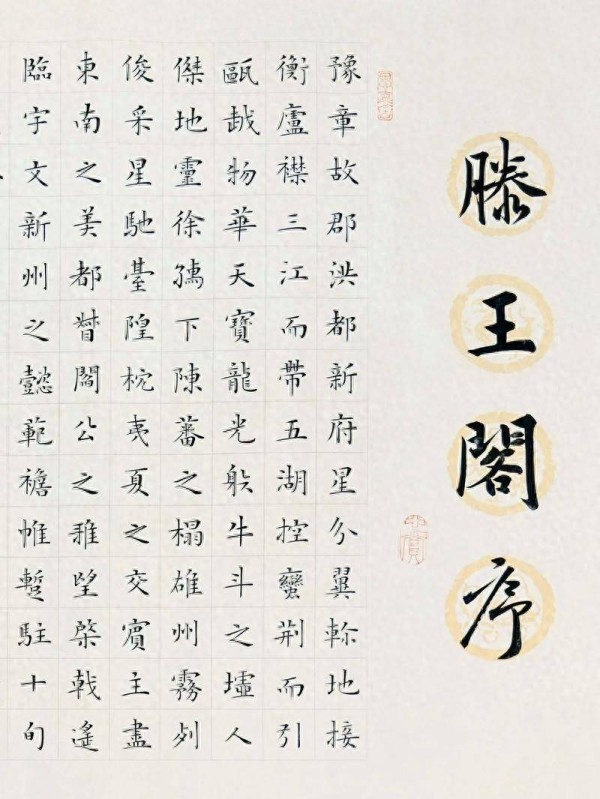 滕王閣序
豫章故郡洪都新府星分翼軫地接
衡廬襟三江而帶五湖控蠻荊而引
甌越物華天寶龍光䠶牛斗之墟人
傑地靈徐孺下陳蕃之榻雄州霧列
俊采星馳臺隍枕夷夏之交賓主盡
東南之美都督閻公之雅望棨戟遙
臨宇文新州之懿範襜帷暫駐十旬